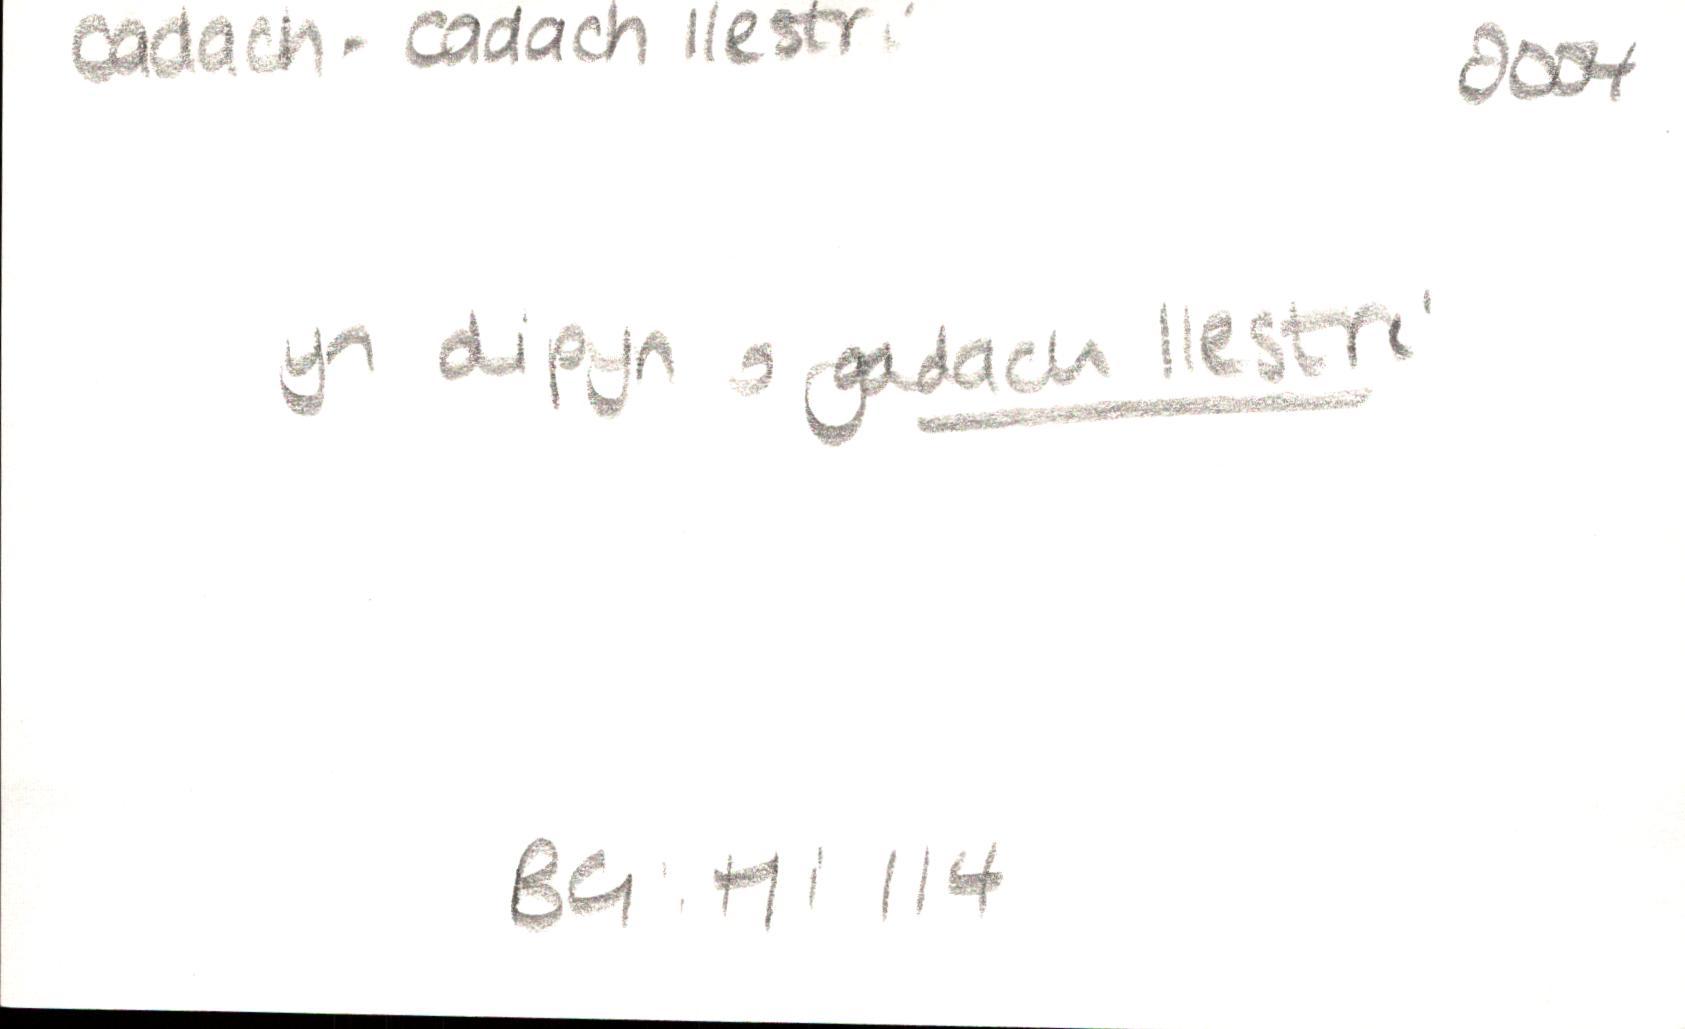 cadach - cadach llestri 2004
yn dipyn o gadach llestri
BG: HI 114